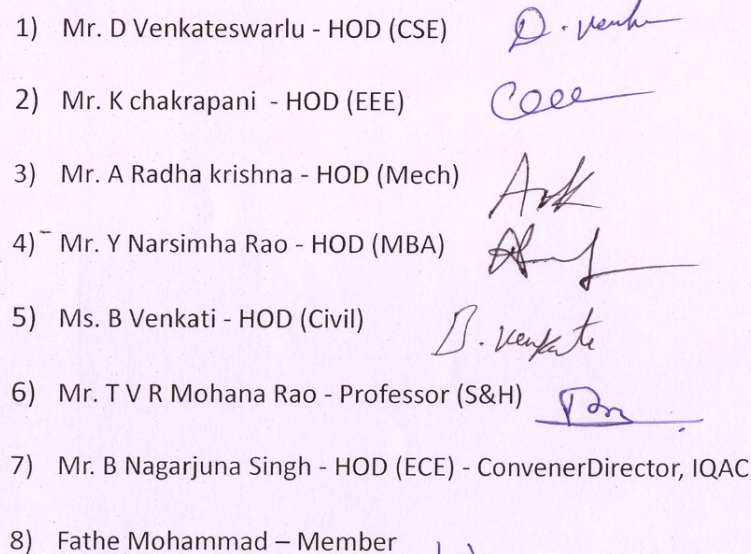 1) Mr. D Venkateswarlu - HOD (CSE) D. Venk
2) Mr. K chakrapani - HOD (EEE)
3) Mr. A Radha krishna - HOD (Mech)
4) Mr. Y Narsimha Rao - HOD (MBA)
5) Ms. B Venkati - HOD (Civil) B. Venkate
6) Mr. T V R Mohana Rao - Professor (S&H)
7) Mr. B Nagarjuna Singh - HOD (ECE) - ConvenerDirector, IQAC
8) Fathe Mohammad – Member